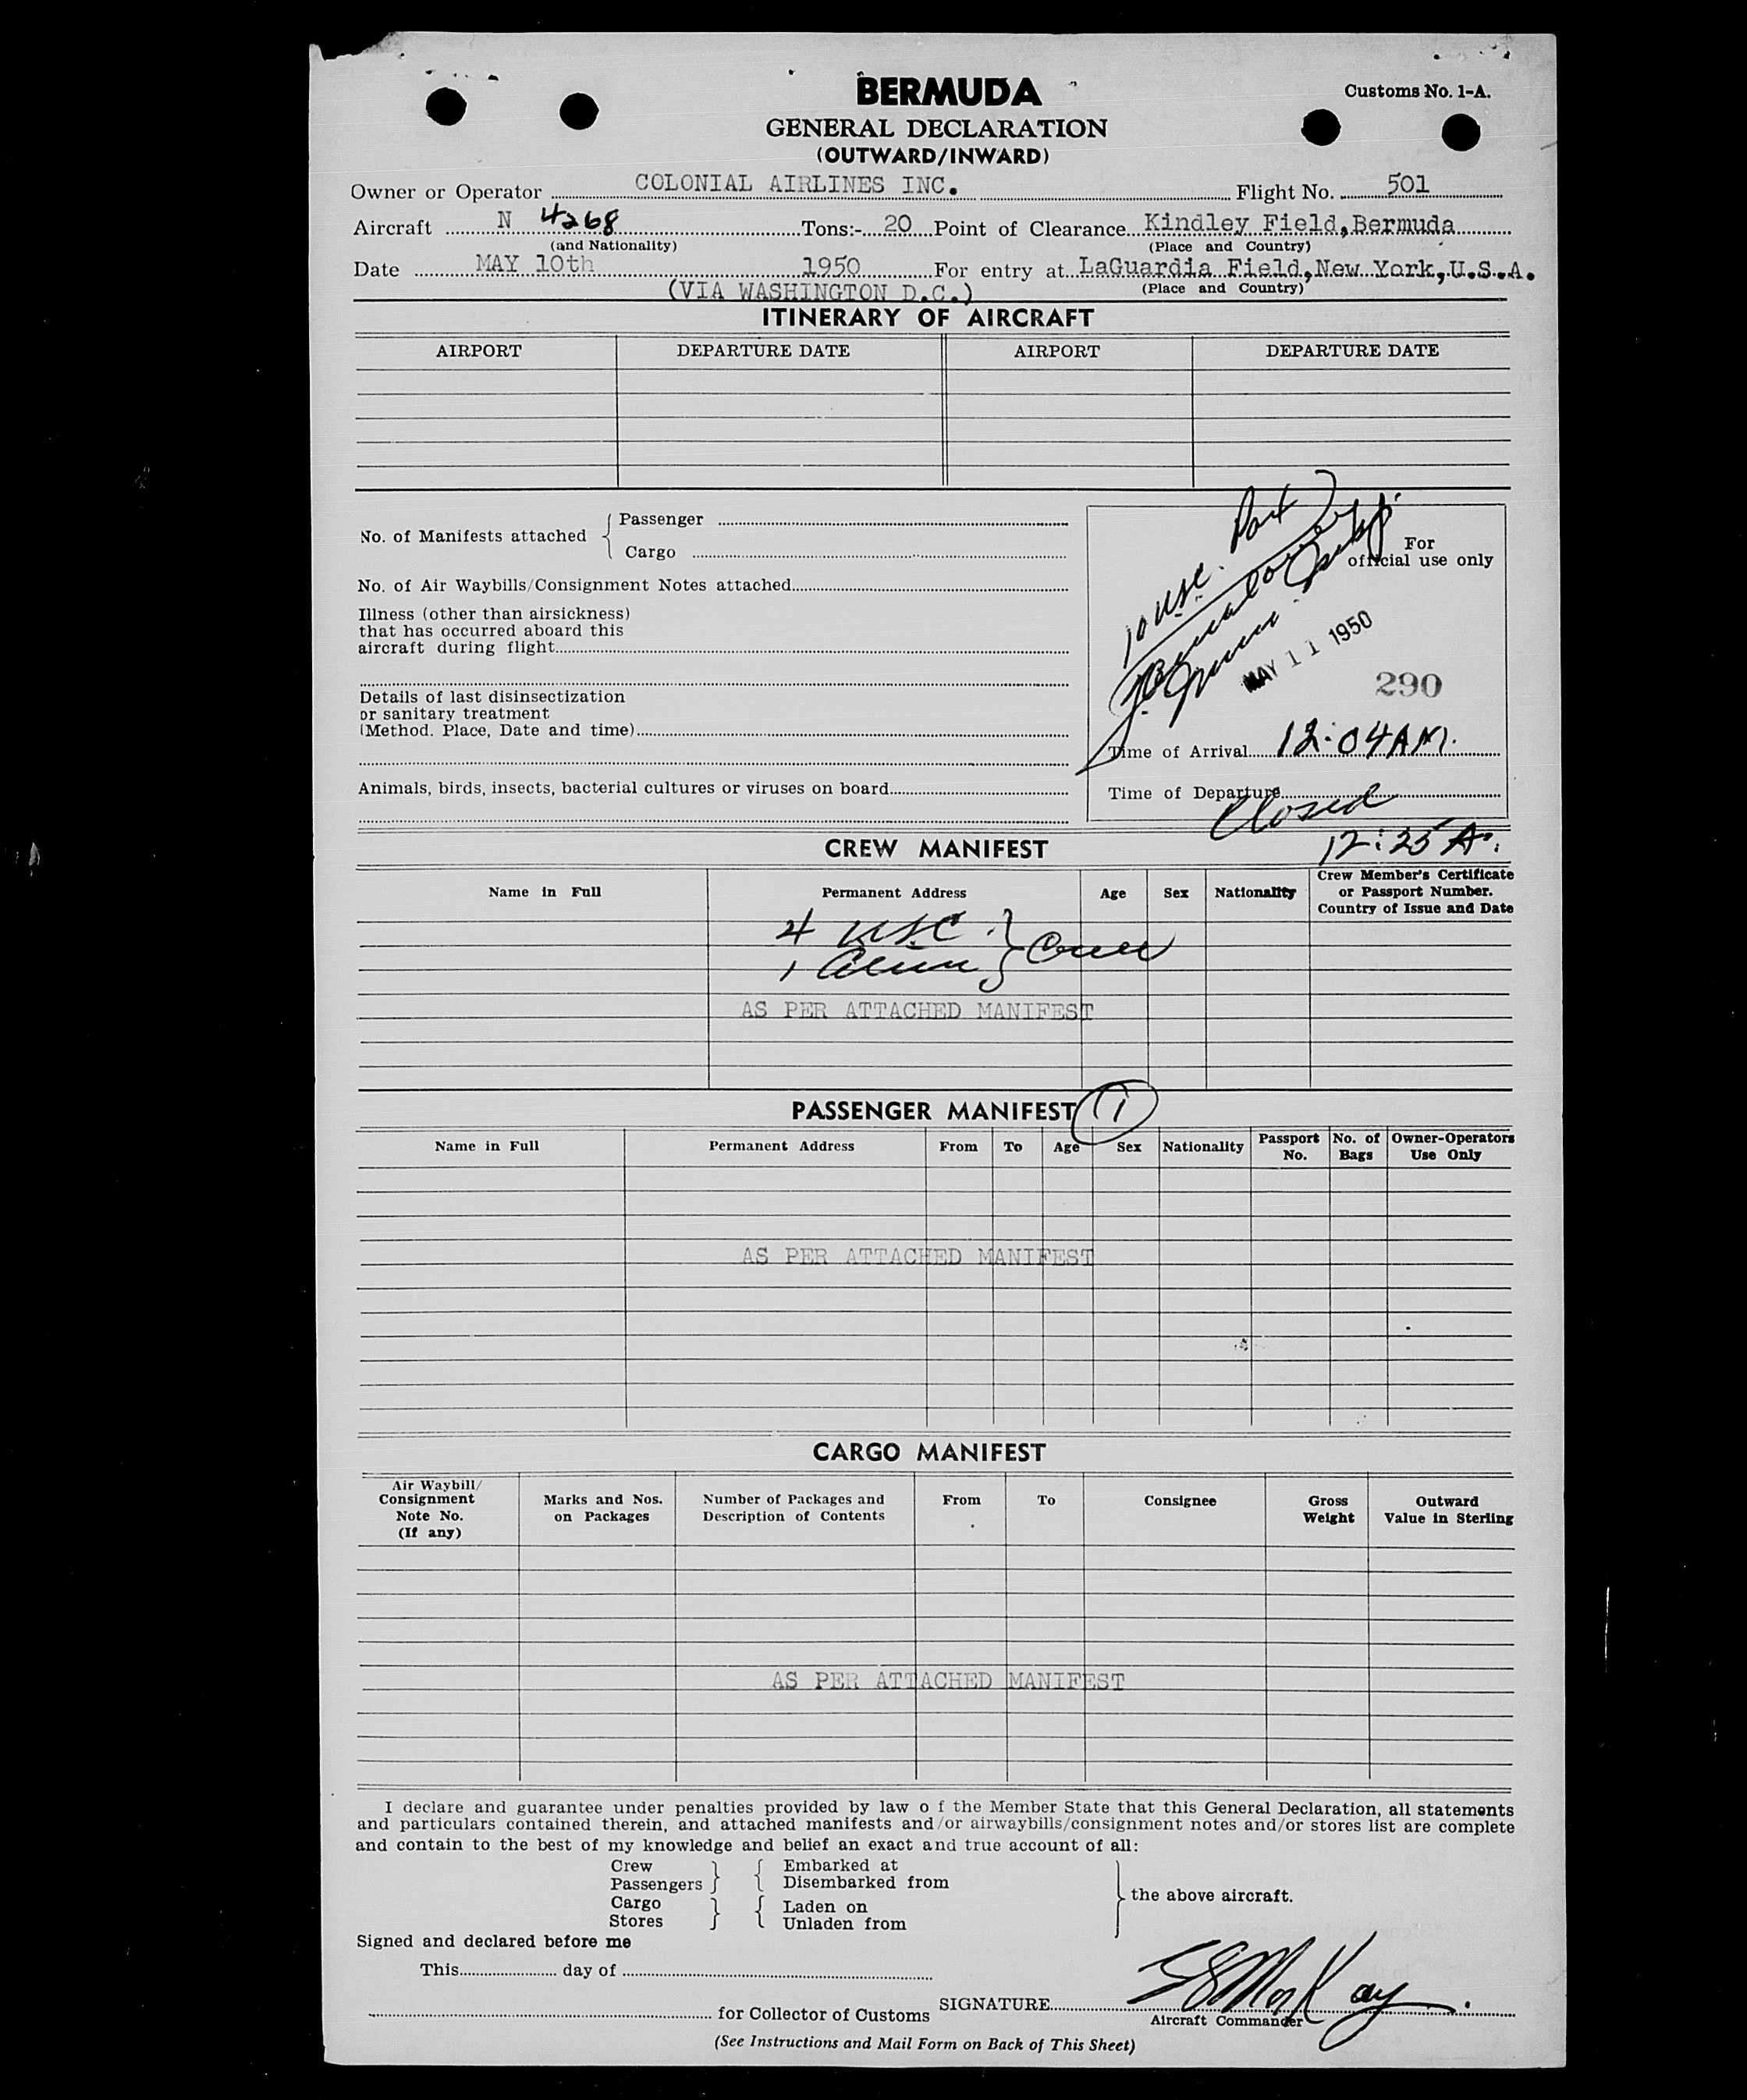 BERMUDA
Customs No. 1-A.
GENERAL DECLARATION
(OUTWARD/INWARD)
Owner or Operator COLONIAL AIRLINES INC. Flight No. 501
Aircraft N 4268 Tons:- 20 Point of Clearance Kindley Field, Bermuda
(and Nationality) (Place and Country)
Date MAY 10th 1950 For entry at LaGuardia Field, New York, U.S.A.
(VIA WASHINGTON D.C.) (Place and Country)
ITINERARY OF AIRCRAFT
AIRPORT DEPARTURE DATE AIRPORT DEPARTURE DATE
No. of Manifests attached { Passenger
Cargo
No. of Air Waybills/Consignment Notes attached
Illness (other than airsickness)
that has occurred aboard this
aircraft during flight
Details of last disinsectization
or sanitary treatment
(Method. Place, Date and time)
Animals, birds, insects, bacterial cultures or viruses on board
For
official use only
10 USC.
MAY 11 1950
290
Time of Arrival 12:04 AM.
Time of Departure
Closed
12:25 A.
CREW MANIFEST
Name in Full Permanent Address Age Sex Nationality Crew Member's Certificate
or Passport Number.
Country of Issue and Date
4 USC } Crew
1 Alien
AS PER ATTACHED MANIFEST
PASSENGER MANIFEST 1
Name in Full Permanent Address From To Age Sex Nationality Passport No. No. of Bags Owner-Operators Use Only
AS PER ATTACHED MANIFEST
CARGO MANIFEST
Air Waybill/
Consignment
Note No.
(If any)
Marks and Nos.
on Packages
Number of Packages and
Description of Contents
From To Consignee
Gross
Weight
Outward
Value in Sterling
AS PER ATTACHED MANIFEST
I declare and guarantee under penalties provided by law o f the Member State that this General Declaration, all statements
and particulars contained therein, and attached manifests and/or airwaybills/consignment notes and/or stores list are complete
and contain to the best of my knowledge and belief an exact and true account of all:
Crew } { Embarked at
Passengers } { Disembarked from
} the above aircraft.
Cargo } { Laden on
Stores } { Unladen from
Signed and declared before me
This day of
for Collector of Customs SIGNATURE
Aircraft Commander
(See Instructions and Mail Form on Back of This Sheet)